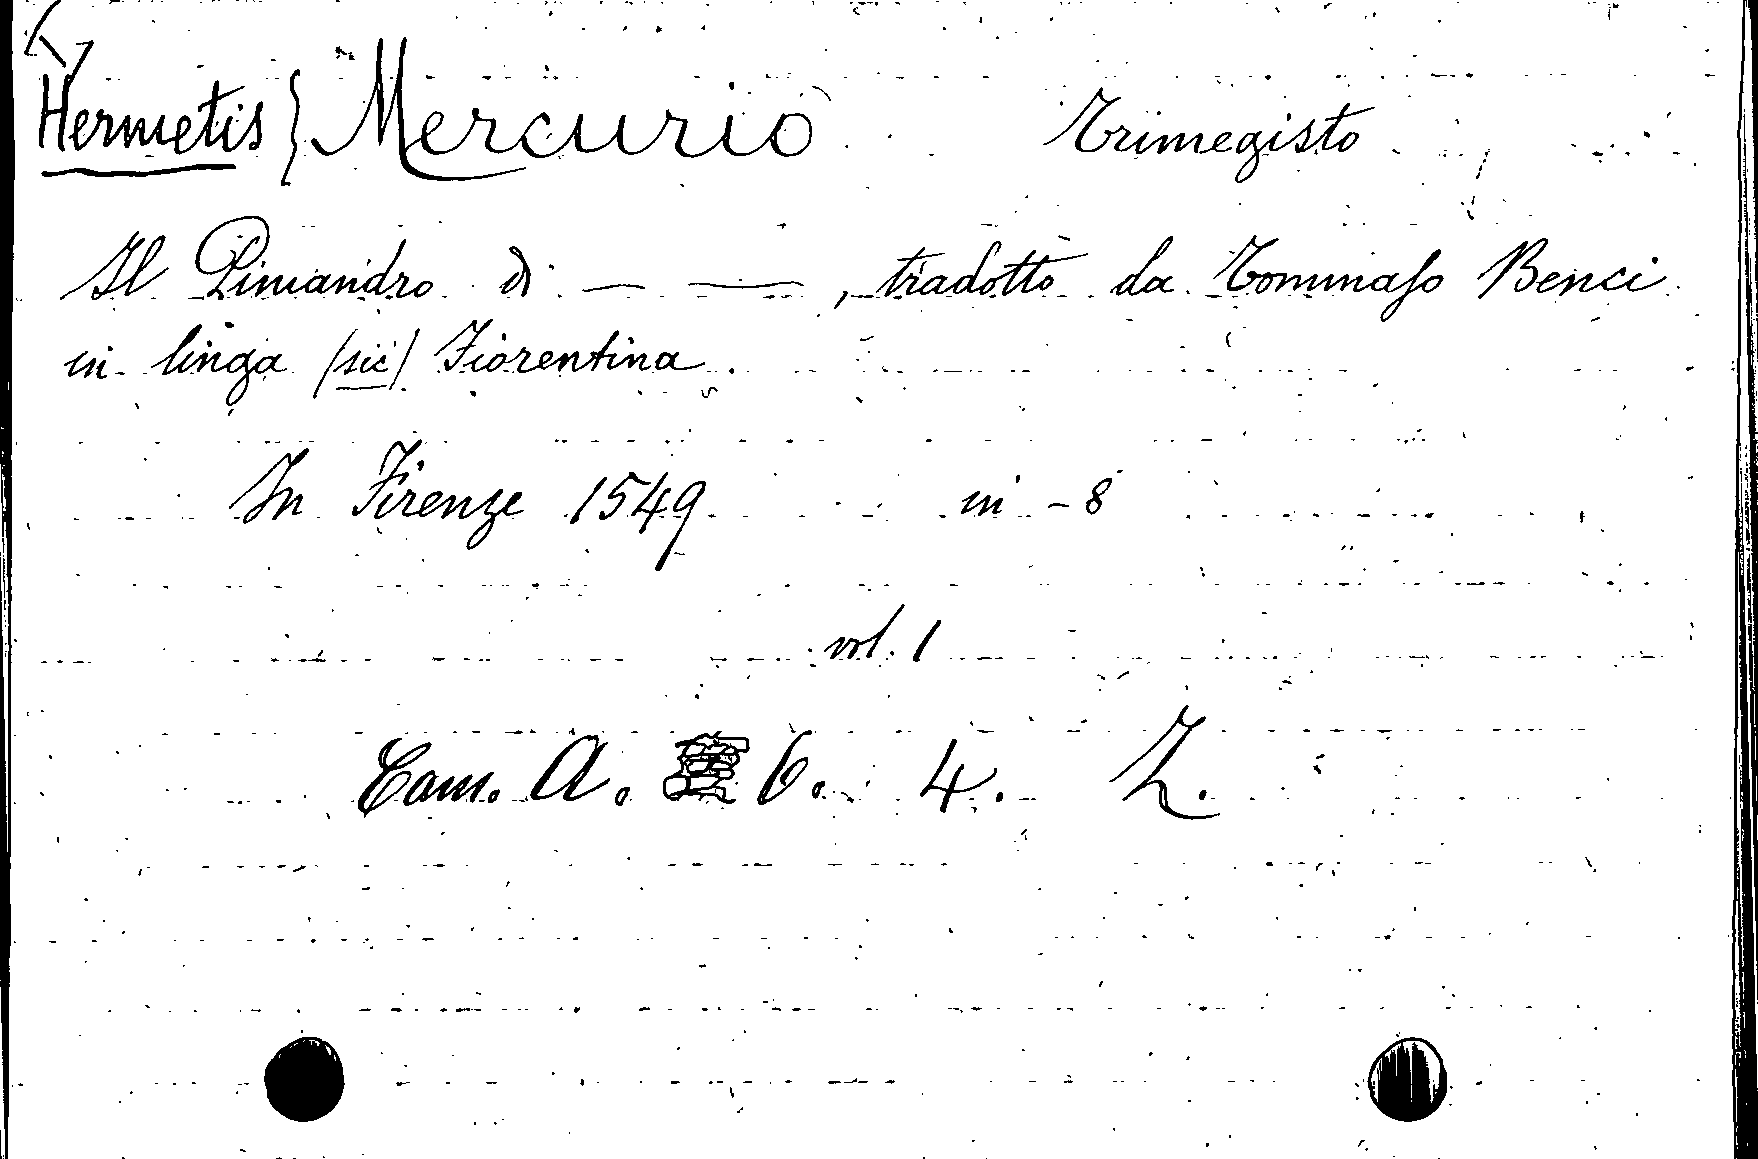 Hermetis } Mercurio Trimegisto
Il Pimandro di — —, tradotto da Tommaso Benci
in linga (sic) Fiorentina.
In Firenze 1549 in - 8
vol. 1
Cam. A. 6. 4. Z.